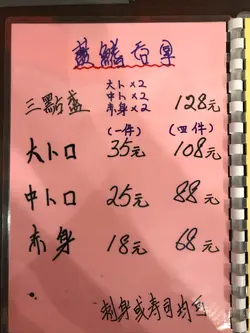 藍鰭吞拿
大卜×2
中卜×2
三點盛 赤身×2 128元
(一件) (四件)
大卜口 35元 108元
中卜口 25元 88元
赤身 18元 68元
刺身或寿司均可